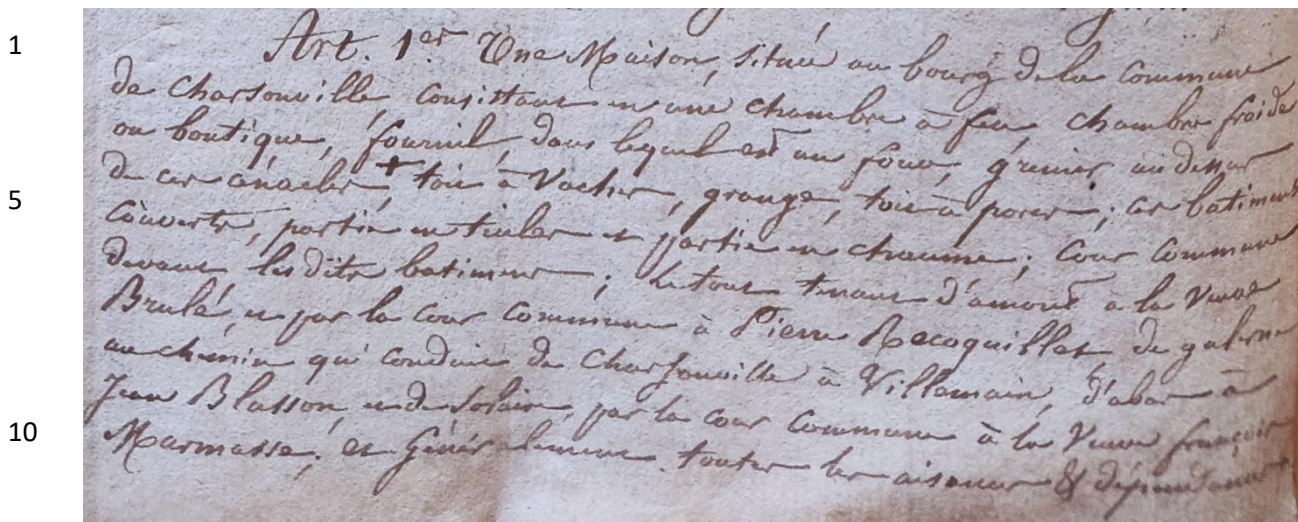 1
Art. 1er Une Maison, située au bourg de la Commune
de Charsonville, Consistant en une chambre à feu, chambre froide
ou boutique, fournil, dans lequel est un four, grenier au dessus
5
de ces + toit à Vaches, grange, toit à porcs; ces batiments
Couverts, partie en tuiles et partie en chaume; Cour Commune
devant les dits batiments; Le tout tenant d'amont à la Veuve
Brulé, et par la Cour Commune à Pierre Recoquillet, de galerne
au chemin qui conduit de Charsonville à Villamain, d'abas à
10
Jean Blusson, et de Solaire, par la cour Commune à la Veuve françois
Marmasse, et Généralement toutes les aisances & dépendances